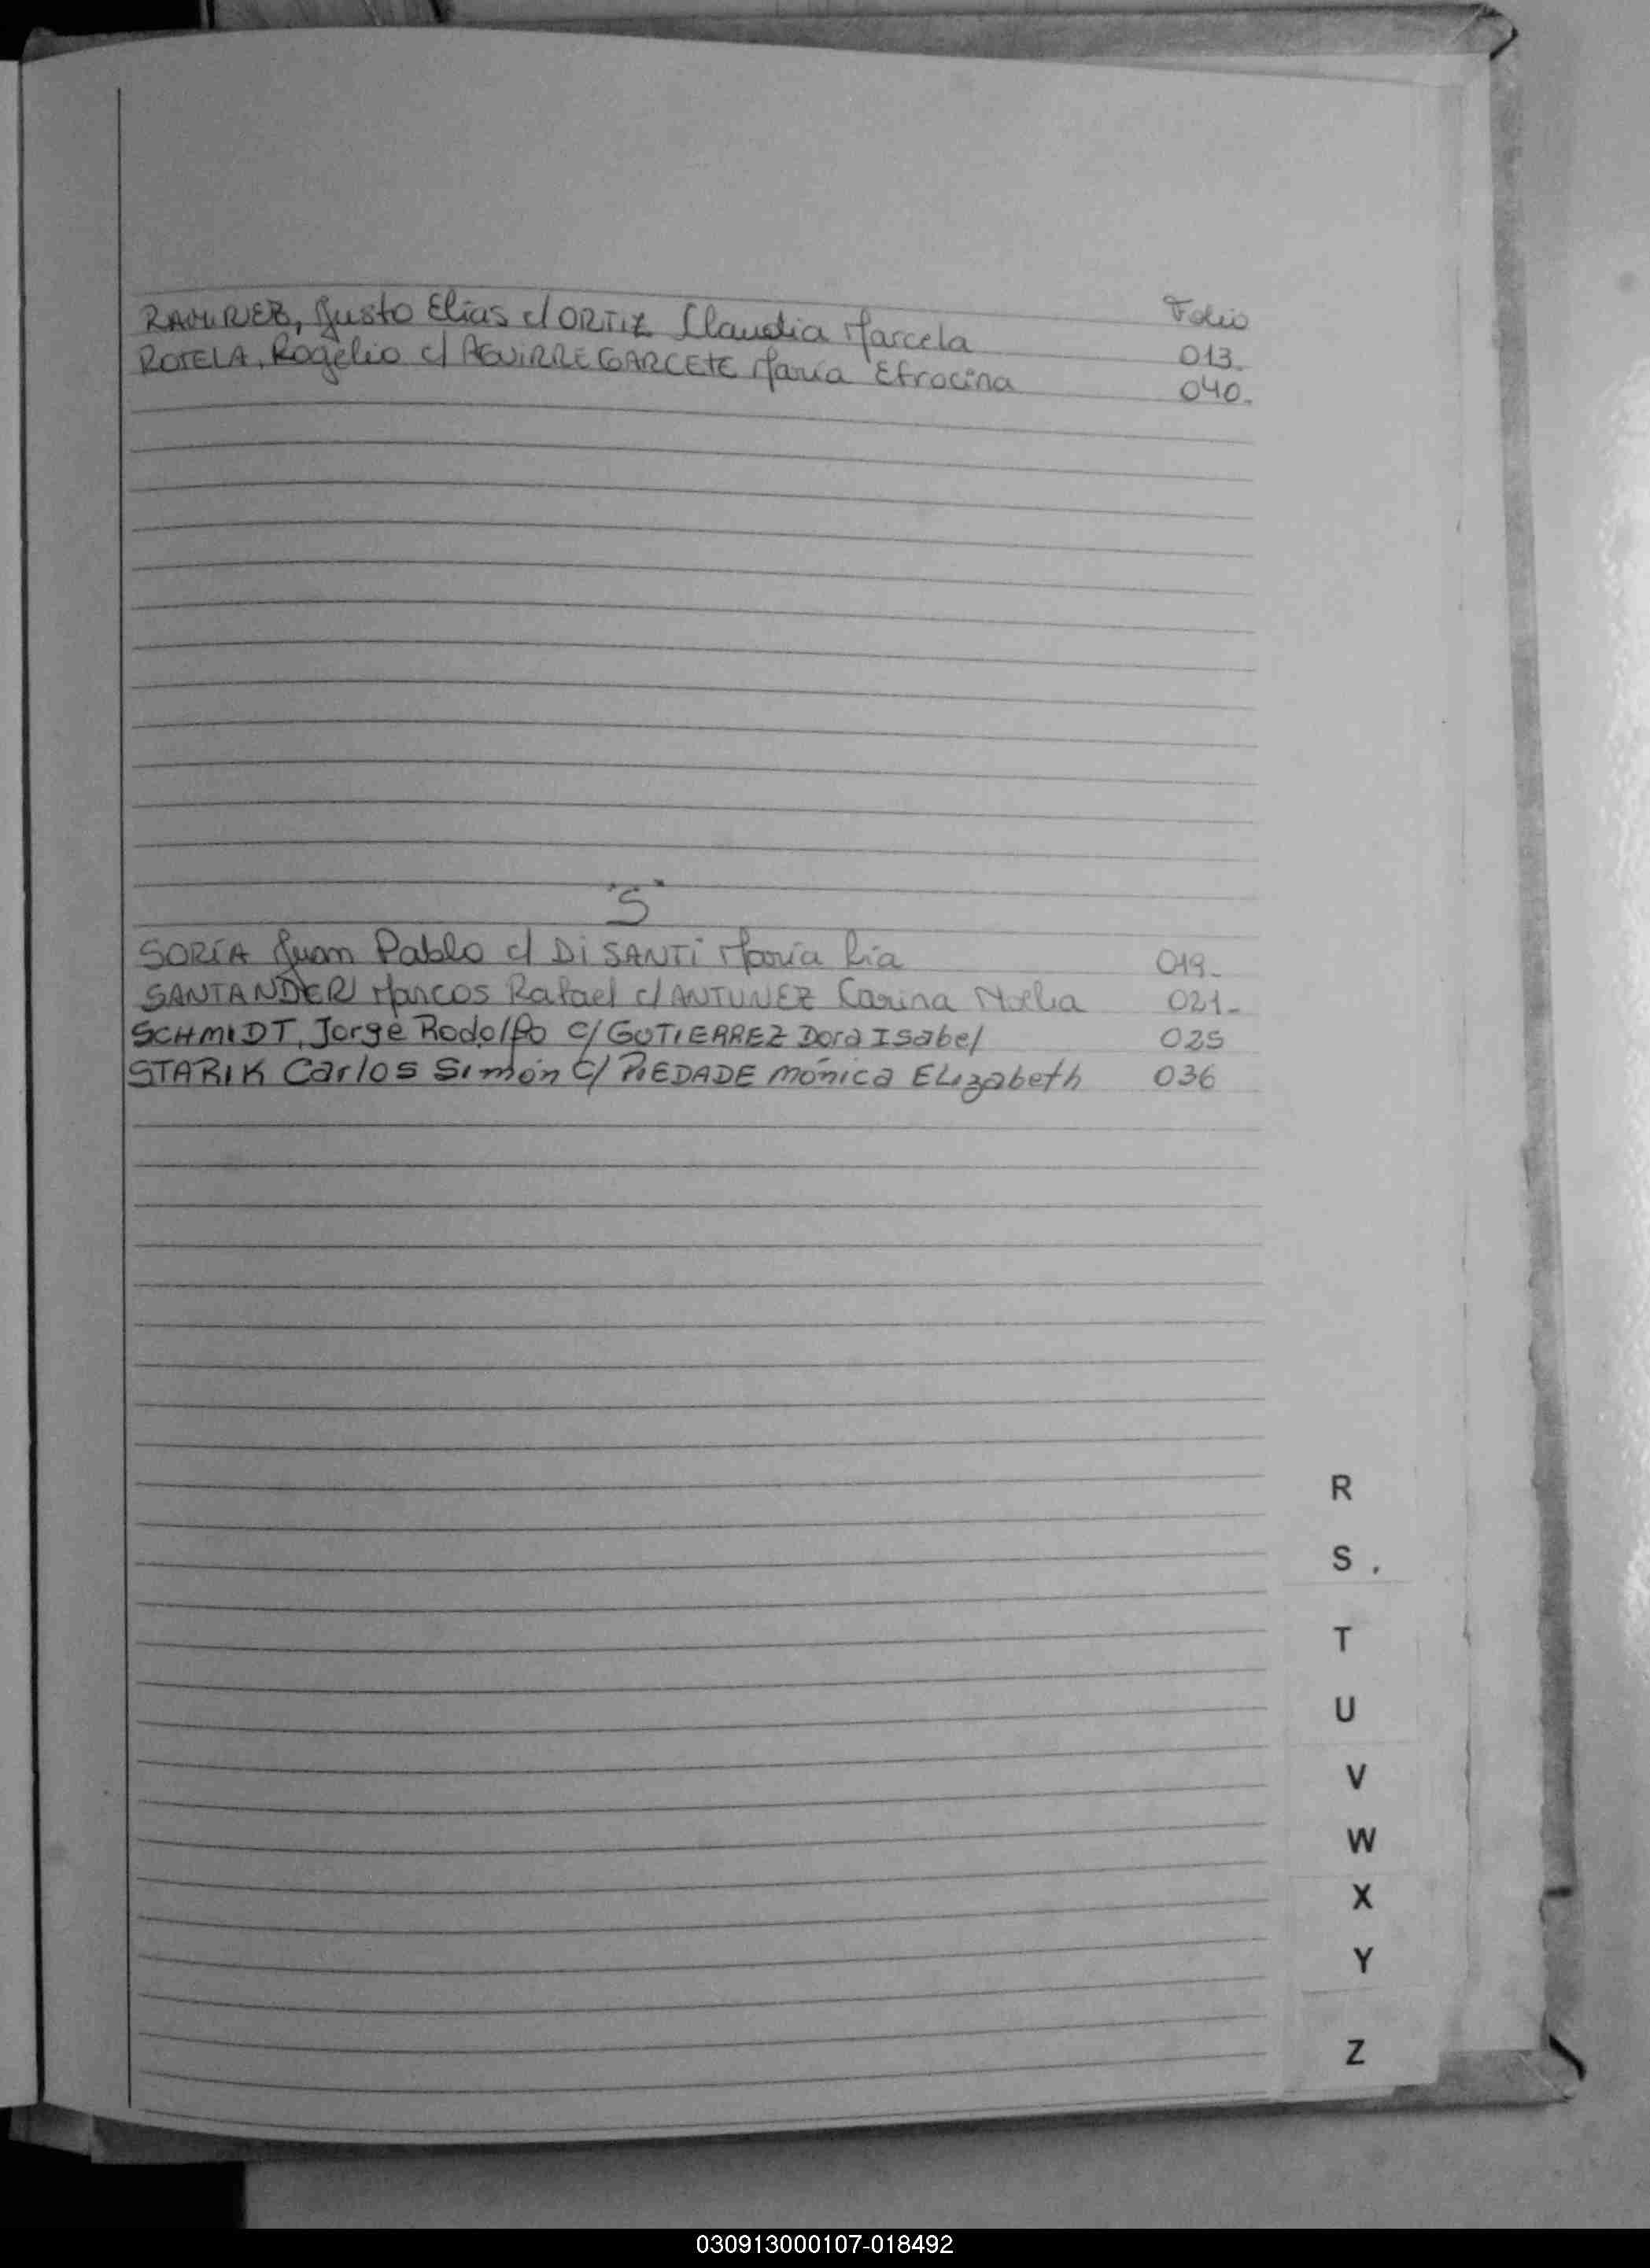 Folio
RAMIREZ, Justo Elias c/ ORTIZ Claudia Marcela 013.
ROTELA, Rogelio c/ AGUIRRE GARCETE María Efrocina 040.
"S"
SORIA Juan Pablo c/ Di SANTi María Lia 019.
SANTANDER Marcos Rafael c/ ANTUNEZ Carina Noelia 021.
SCHMIDT, Jorge Rodolfo c/ GUTIERREZ Dora Isabel 025
STARIK Carlos Simón c/ PIEDADE Mónica ELizabeth 036
R
S
T
U
V
W
X
Y
Z
030913000107-018492